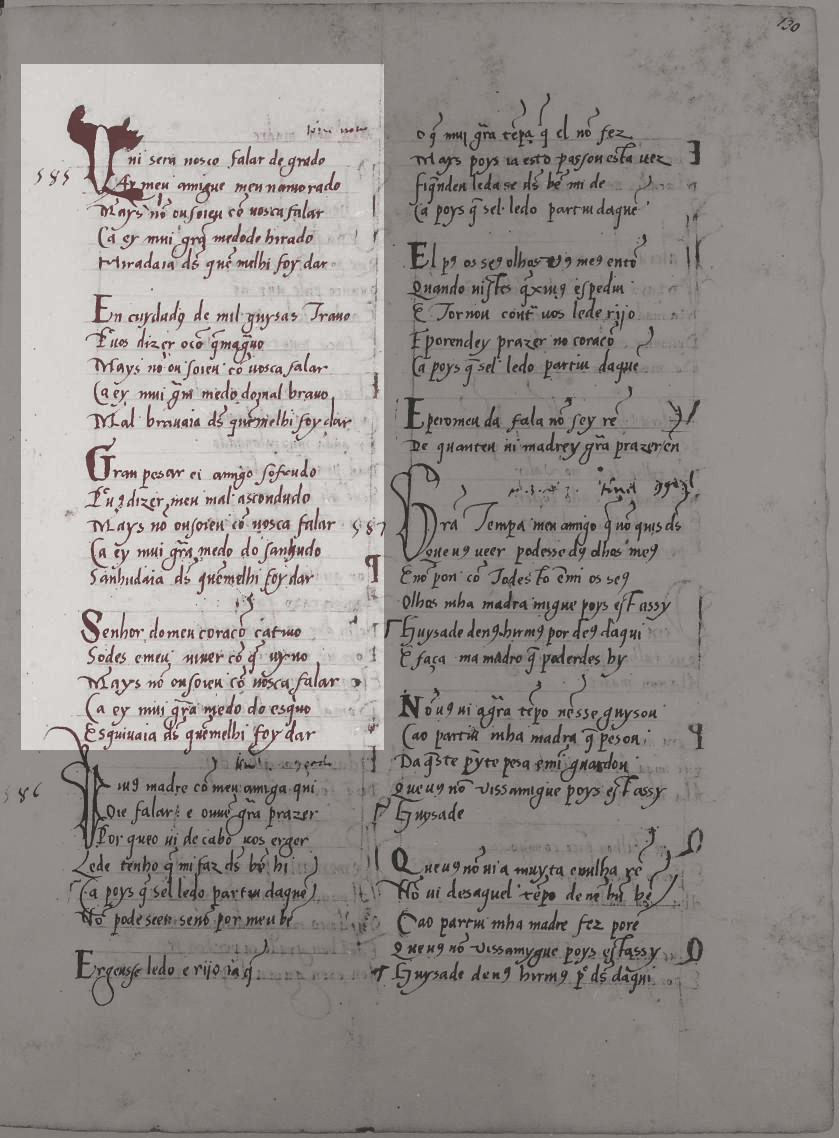 130
585
Vni sera uosco falar de grado
Ay meu amigue meu namorado
Mays nõ ousoieu cõ uosca falar
Ca ey mui grã medodo hirado
Hiradaia ds̃ quẽ melhi foy dar
En cuydadꝯ de mil guysas Trauo
Pʳuos dizer ocõ q̃magrauo
Mays nõ ousoieu cõ uosca falar
Ca ey mui grã medo do mal brauo
Mal brauaia ds̃ quẽmelhi foy dar
Gran pesar ei amigo sofrudo
Pʳ uꝯ dizer meu mal ascondudo
Mays nõ ousoieu cõ uosca falar
Ca ey mui grã medo do sanhudo
Sanhudaia ds̃ quẽmelhi foy dar
Senhor do meu coraçõ catiuo
Sodes emeu uiuer cõ q̃ uyuo
Mays nõ ousoieu cõ uosca falar
Ca ey mui grã medo do esquo
Esquiuaia ds̃ quẽmelhi foy dar
586
Fuꝯ madre cõ meu amiga qui
Oie falar e ouuꝯ grã prazer
Por queo ui de cabo uos erger
Lede tenho q̃ mi faz ds̃ bẽ hi
Ca poys q̃ sel ledo partiu daquẽ
Nõ pode seer senõ por meu bẽ
Ergense ledo e rijo ia q̃
o q̃ mui grã tẽpa q̃ el nõ fez
Mays poys ia esto passou esta uez
fiq̃nden leda se ds̃ bẽ mi de
Ca poys q̃ sel ledo partiu daquẽ
El pꝯ os seꝯ olhos nꝯ meꝯ entõ
Quando uistes q̃xiuꝯ espediu
E Tornou cont̃ uos lede rijo
E porendey prazer no coraçõ
Ca poys q̃ sel ledo partiu daquẽ
E peromeu da fala nõ sey rẽ
De quanteu ui madrey grã prazer en
587
Grã Tempa meu amigo q̃ nõ quis ds̃
Queuꝯ ueer podesse dꝯ olhos meꝯ
E nõ pon cõ Todesto ẽmi os seꝯ
Olhos mha madra migue poys estassy
Guysade denꝯ hirmꝯ por deꝯ daqui
E faça ma madro q̃ poderdes hy
Nõ uꝯ ui agrã tẽpo nẽsse guysou
Ca o partiu mha madra q̃ pẽsou
Da q̃ste pr̃yte pesa ẽmi guardou
Que uꝯ nõ uissamigue poys estassy
Guysade
Que uꝯ nõ ui a muyta e nulha rẽ
Nõ ui desaquel tẽpo de nẽ hũ bẽ
Ca o partiu mha madre fez porẽ
Que uꝯ nõ uissamygue poys estassy
Guysade denꝯ hirmꝯ pʳ ds̃ daqui